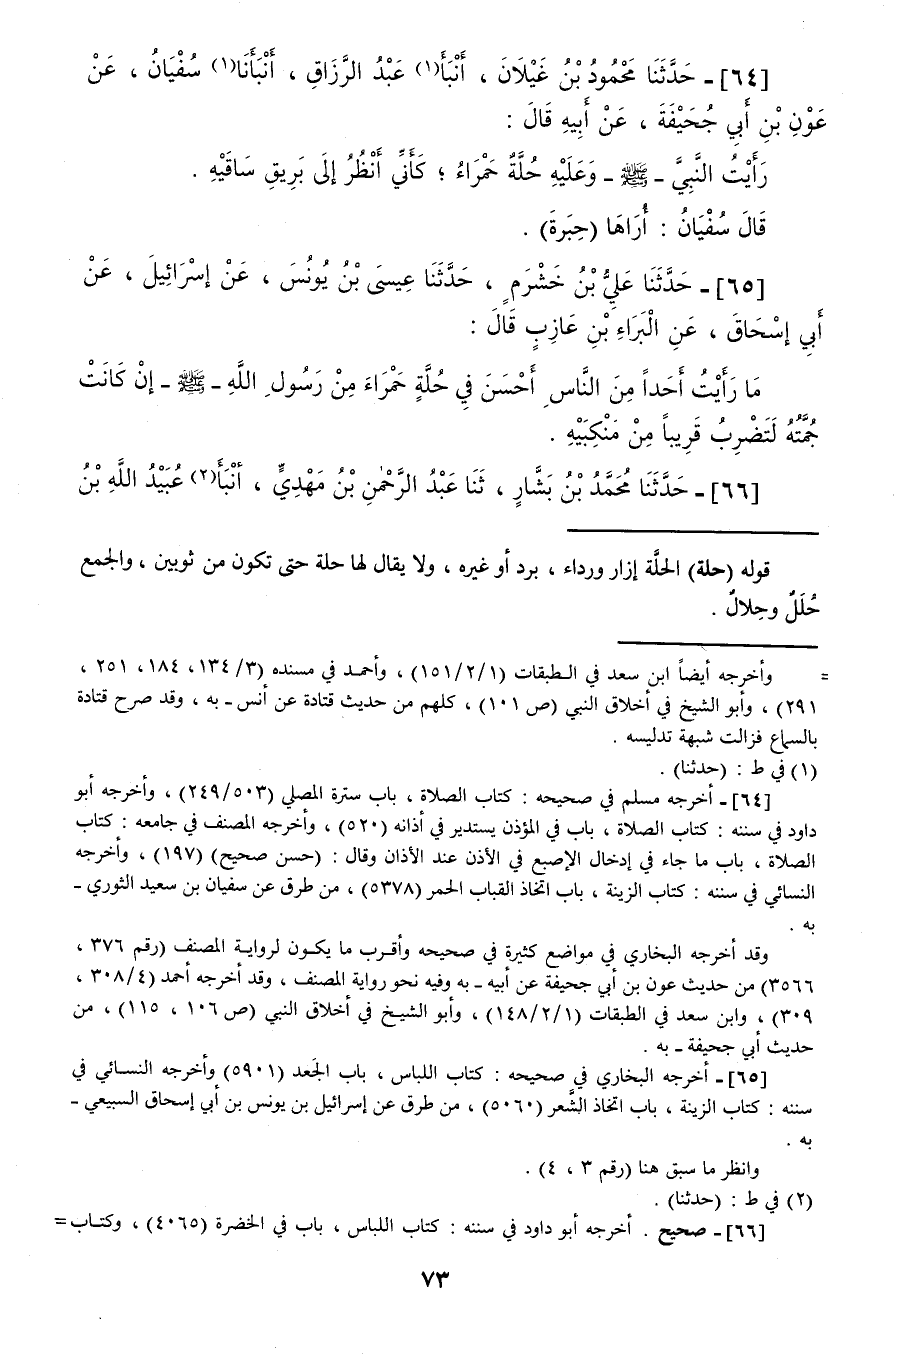 [٦٤] ـ حَدَّثَنَا مَحْمُودُ بْنُ غَيْلَانَ ، أَنْبَأَ(١) عَبْدُ الرَّزَاقِ ، أَنْبَأَنَا(١) سُفْيَانُ ، عَنْ
عَوْنِ بْنِ أَبِي جُحَيْفَةَ ، عَنْ أَبِيهِ قَالَ :
رَأَيْتُ النَّبِيَّ ـ ﷺ ـ وَعَلَيْهِ حُلَّةٌ حَمْرَاءُ ؛ كَأَنِّي أَنْظُرُ إلَى بَرِيقِ سَاقَيْهِ .
قَالَ سُفْيَانُ : أُرَاهَا (حِبَرةَ) .
[٦٥] ـ حَدَّثَنَا عَلِيُّ بْنُ خَشْرَمٍ ، حَدَّثَنَا عِيسَى بْنُ يُونُسَ ، عَنْ إسْرَائِيلَ ، عَنْ
أَبِي إسْحَاقَ ، عَنِ الْبَرَاءِ بْنِ عَازِبٍ قَالَ :
مَا رَأَيْتُ أَحَداً مِنَ النَّاسِ أَحْسَنَ فِي حُلَّةٍ حَمْرَاءَ مِنْ رَسُولِ اللَّهِ ـ ﷺ ـ إنْ كَانَتْ
جُمَّتُهُ لَتَضْرِبُ قَرِيباً مِنْ مَنْكِبَيْهِ .
[٦٦] ـ حَدَّثَنَا مُحَمَّدُ بْنُ بَشَّارٍ ، ثَنَا عَبْدُ الرَّحْمٰنِ بْنُ مَهْدِيٍّ ، أنْبَأَ(٢) عُبَيْدُ اللَّهِ بْنُ
قوله (حلة) الحلَّة إزار ورداء ، برد أو غيره ، ولا يقال لها حلة حتى تكون من ثوبين ، والجمع
حُلَلٌ وحِلالٌ .
= وأخرجه أيضاً ابن سعد في الطبقات (١٥١/٢/١) ، وأحمد في مسنده (١٣٤/٣، ١٨٤، ٢٥١ ،
٢٩١) ، وأبو الشيخ في أخلاق النبي (ص ١٠١) ، كلهم من حديث قتادة عن أنس ـ به ، وقد صرح قتادة
بالسماع فزالت شبهة تدليسه .
(١) في ط : (حدثنا) .
[٦٤] ـ أخرجه مسلم في صحيحه : كتاب الصلاة ، باب سترة المصلي (٢٤٩/٥٠٣) ، وأخرجه أبو
داود في سننه : كتاب الصلاة ، باب في المؤذن يستدير في أذانه (٥٢٠) ، وأخرجه المصنف في جامعه : كتاب
الصلاة ، باب ما جاء في إدخال الإصبع في الأذن عند الأذان وقال : (حسن صحيح) (١٩٧) ، وأخرجه
النسائي في سننه : كتاب الزينة ، باب اتخاذ القباب الحمر (٥٣٧٨) ، من طرق عن سفيان بن سعيد الثوري ـ
به .
وقد أخرجه البخاري في مواضع كثيرة في صحيحه وأقرب ما يكون لرواية المصنف (رقم ٣٧٦ ،
٣٥٦٦) من حديث عون بن أبي جحيفة عن أبيه ـ به وفيه نحو رواية المصنف ، وقد أخرجه أحمد (٣٠٨/٤ ،
٣٠٩) ، وابن سعد في الطبقات (١٤٨/٢/١) ، وأبو الشيخ في أخلاق النبي (ص ١٠٦ ، ١١٥) ، من
حديث أبي جحيفة ـ به .
[٦٥] ـ أخرجه البخاري في صحيحه : كتاب اللباس ، باب الجَعد (٥٩٠١) وأخرجه النسائي في
سننه : كتاب الزينة ، باب اتخاذ الشَّعر (٥٠٦٠) ، من طرق عن إسرائيل بن يونس بن أبي إسحاق السبيعي ـ
به .
وانظر ما سبق هنا (رقم ٣ ، ٤) .
(٢) في ط : (حدثنا) .
[٦٦] ـ صحيح . أخرجه أبو داود في سننه : كتاب اللباس ، باب في الخضرة (٤٠٦٥) ، وكتاب=
٧٣